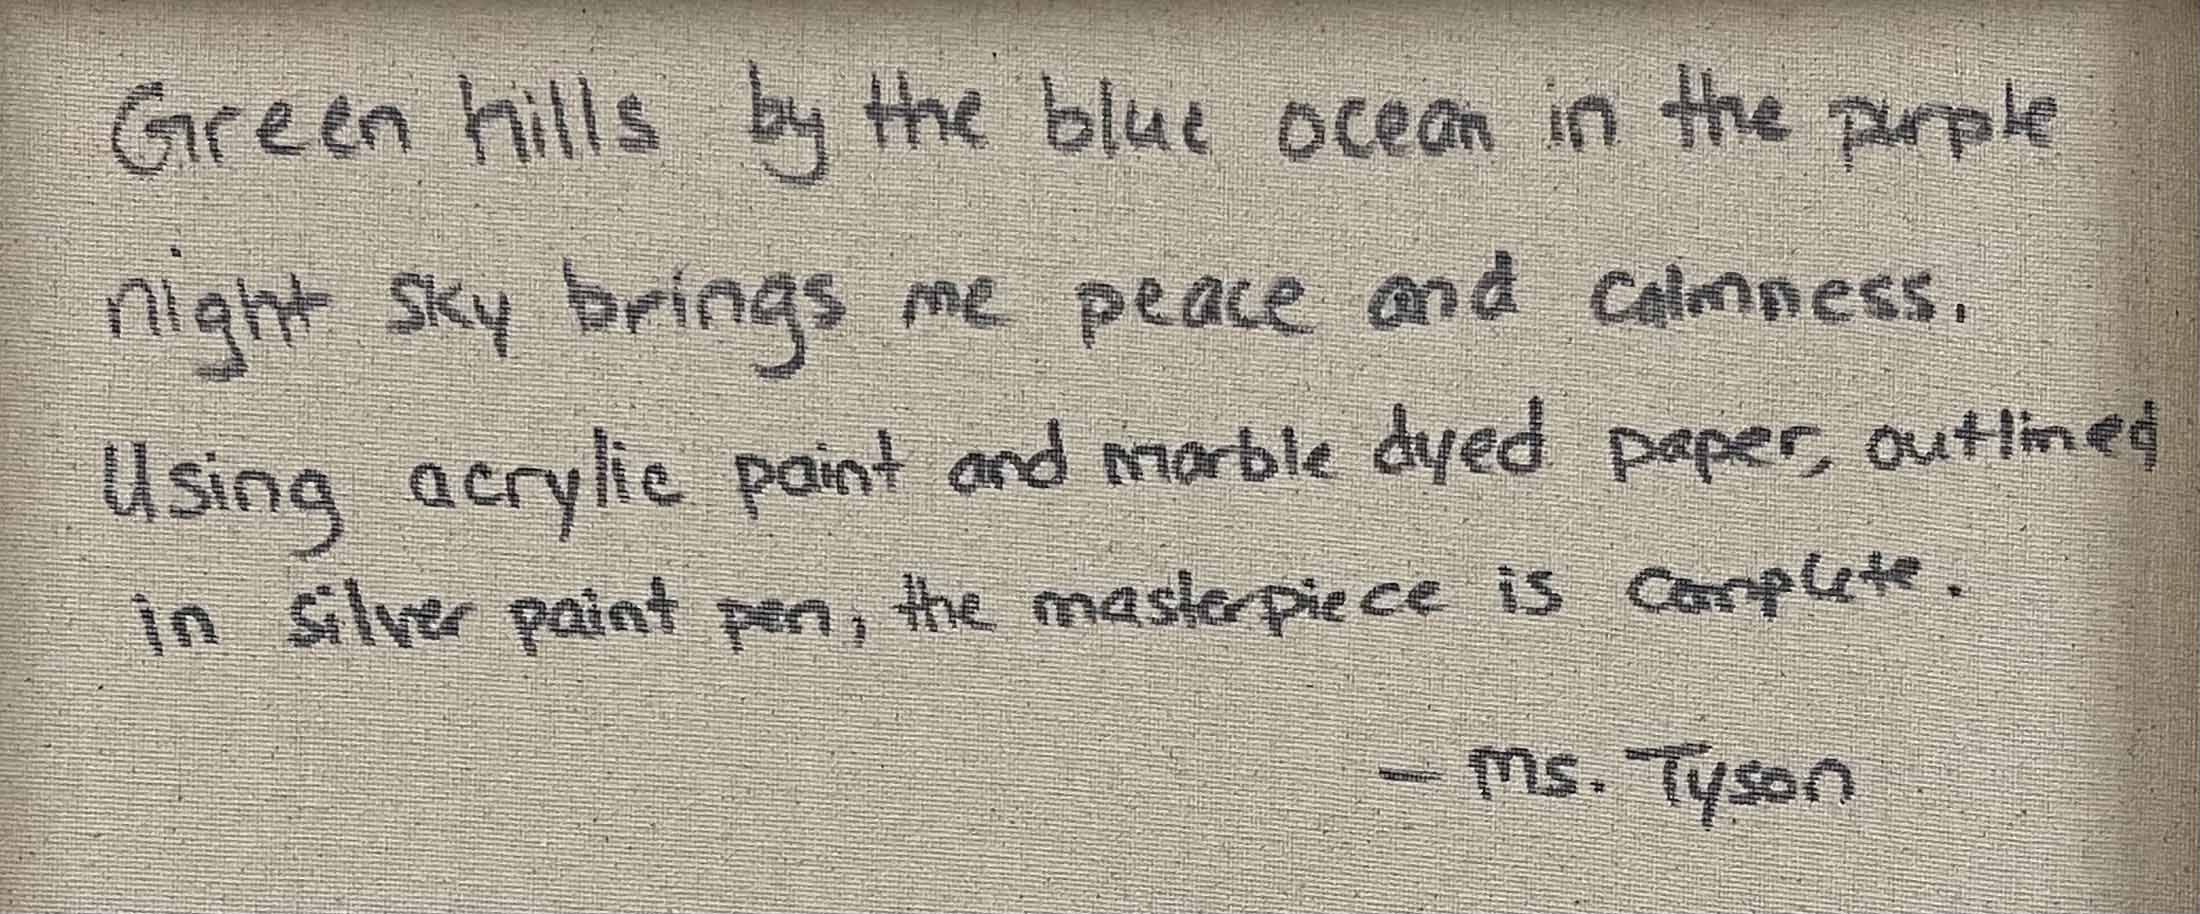 Green hills by the blue ocean in the purple
night sky brings me peace and calmness.
Using acrylic paint and marble dyed paper, outlined
in silver paint pen, the masterpiece is complete.
- Ms. Tyson